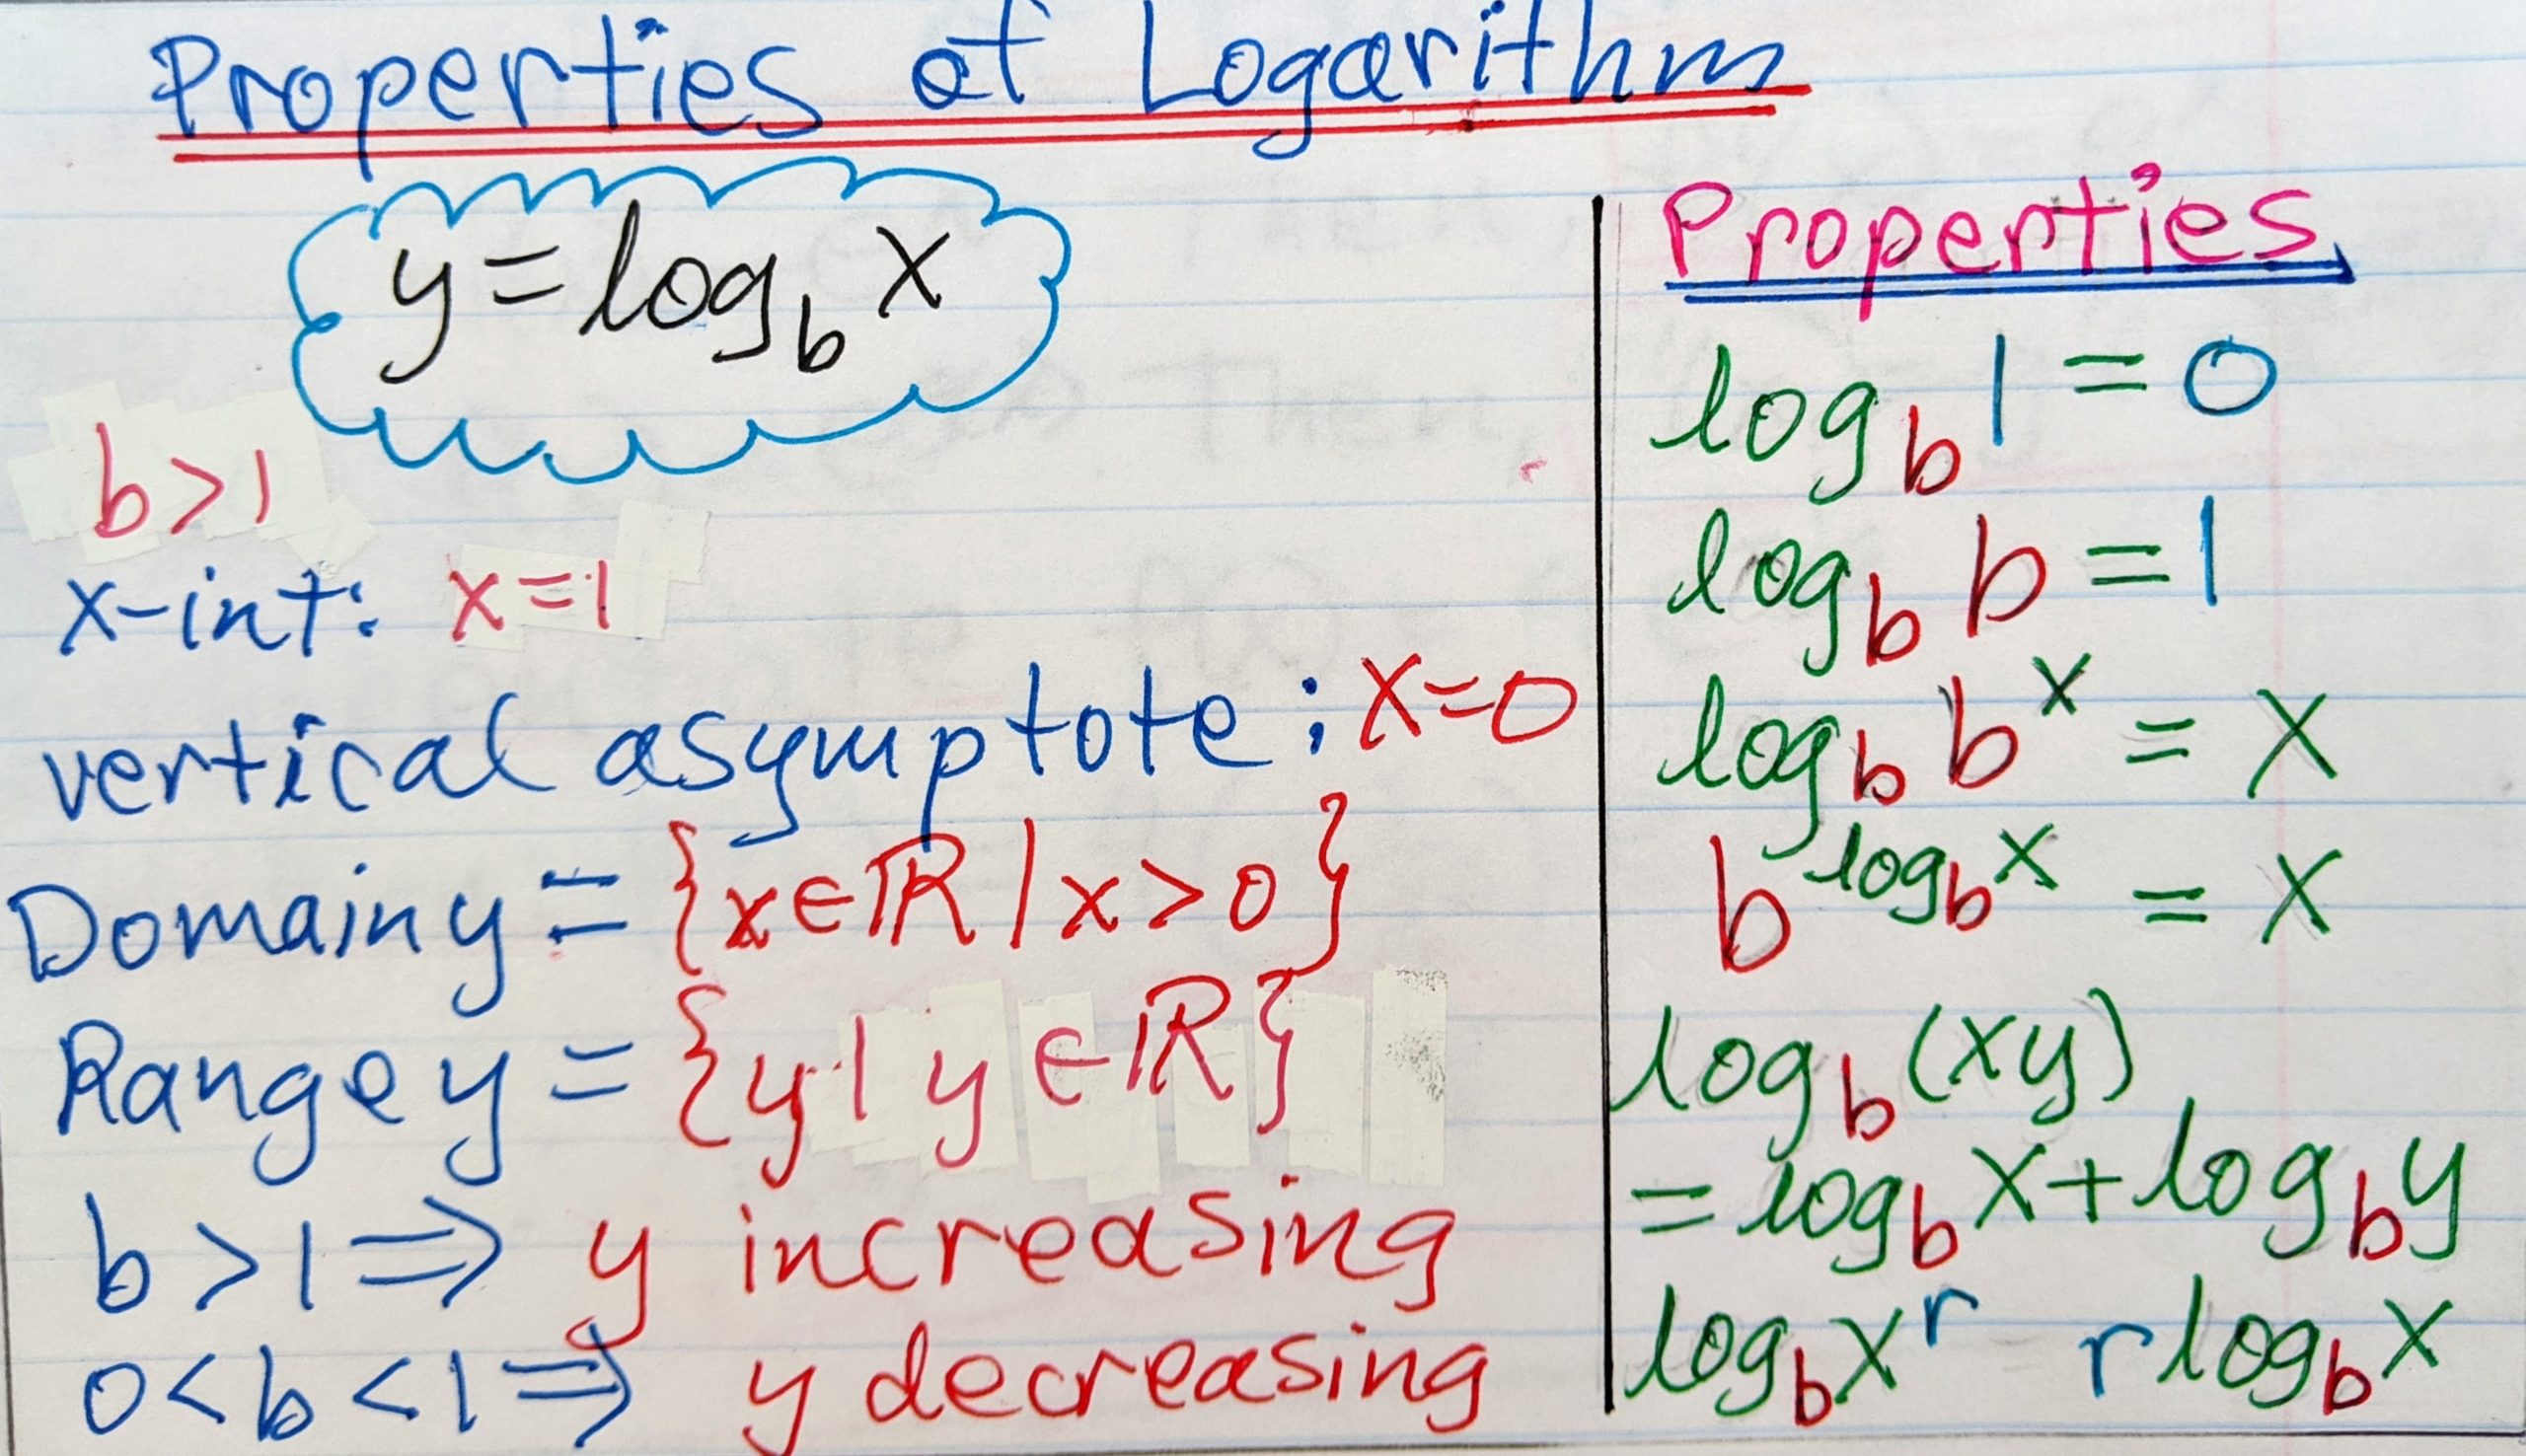 Properties of Logarithm
y = log_b x
b > 1
x-int: x = 1
vertical asymptote: x = 0
Domain y = {x ∈ ℝ | x > 0}
Range y = {y | y ∈ ℝ}
b > 1 ⇒ y increasing
0 < b < 1 ⇒ y decreasing
Properties
log_b 1 = 0
log_b b = 1
log_b b^x = x
b^(log_b x) = x
log_b (xy)
= log_b x + log_b y
log_b x^r = r log_b x